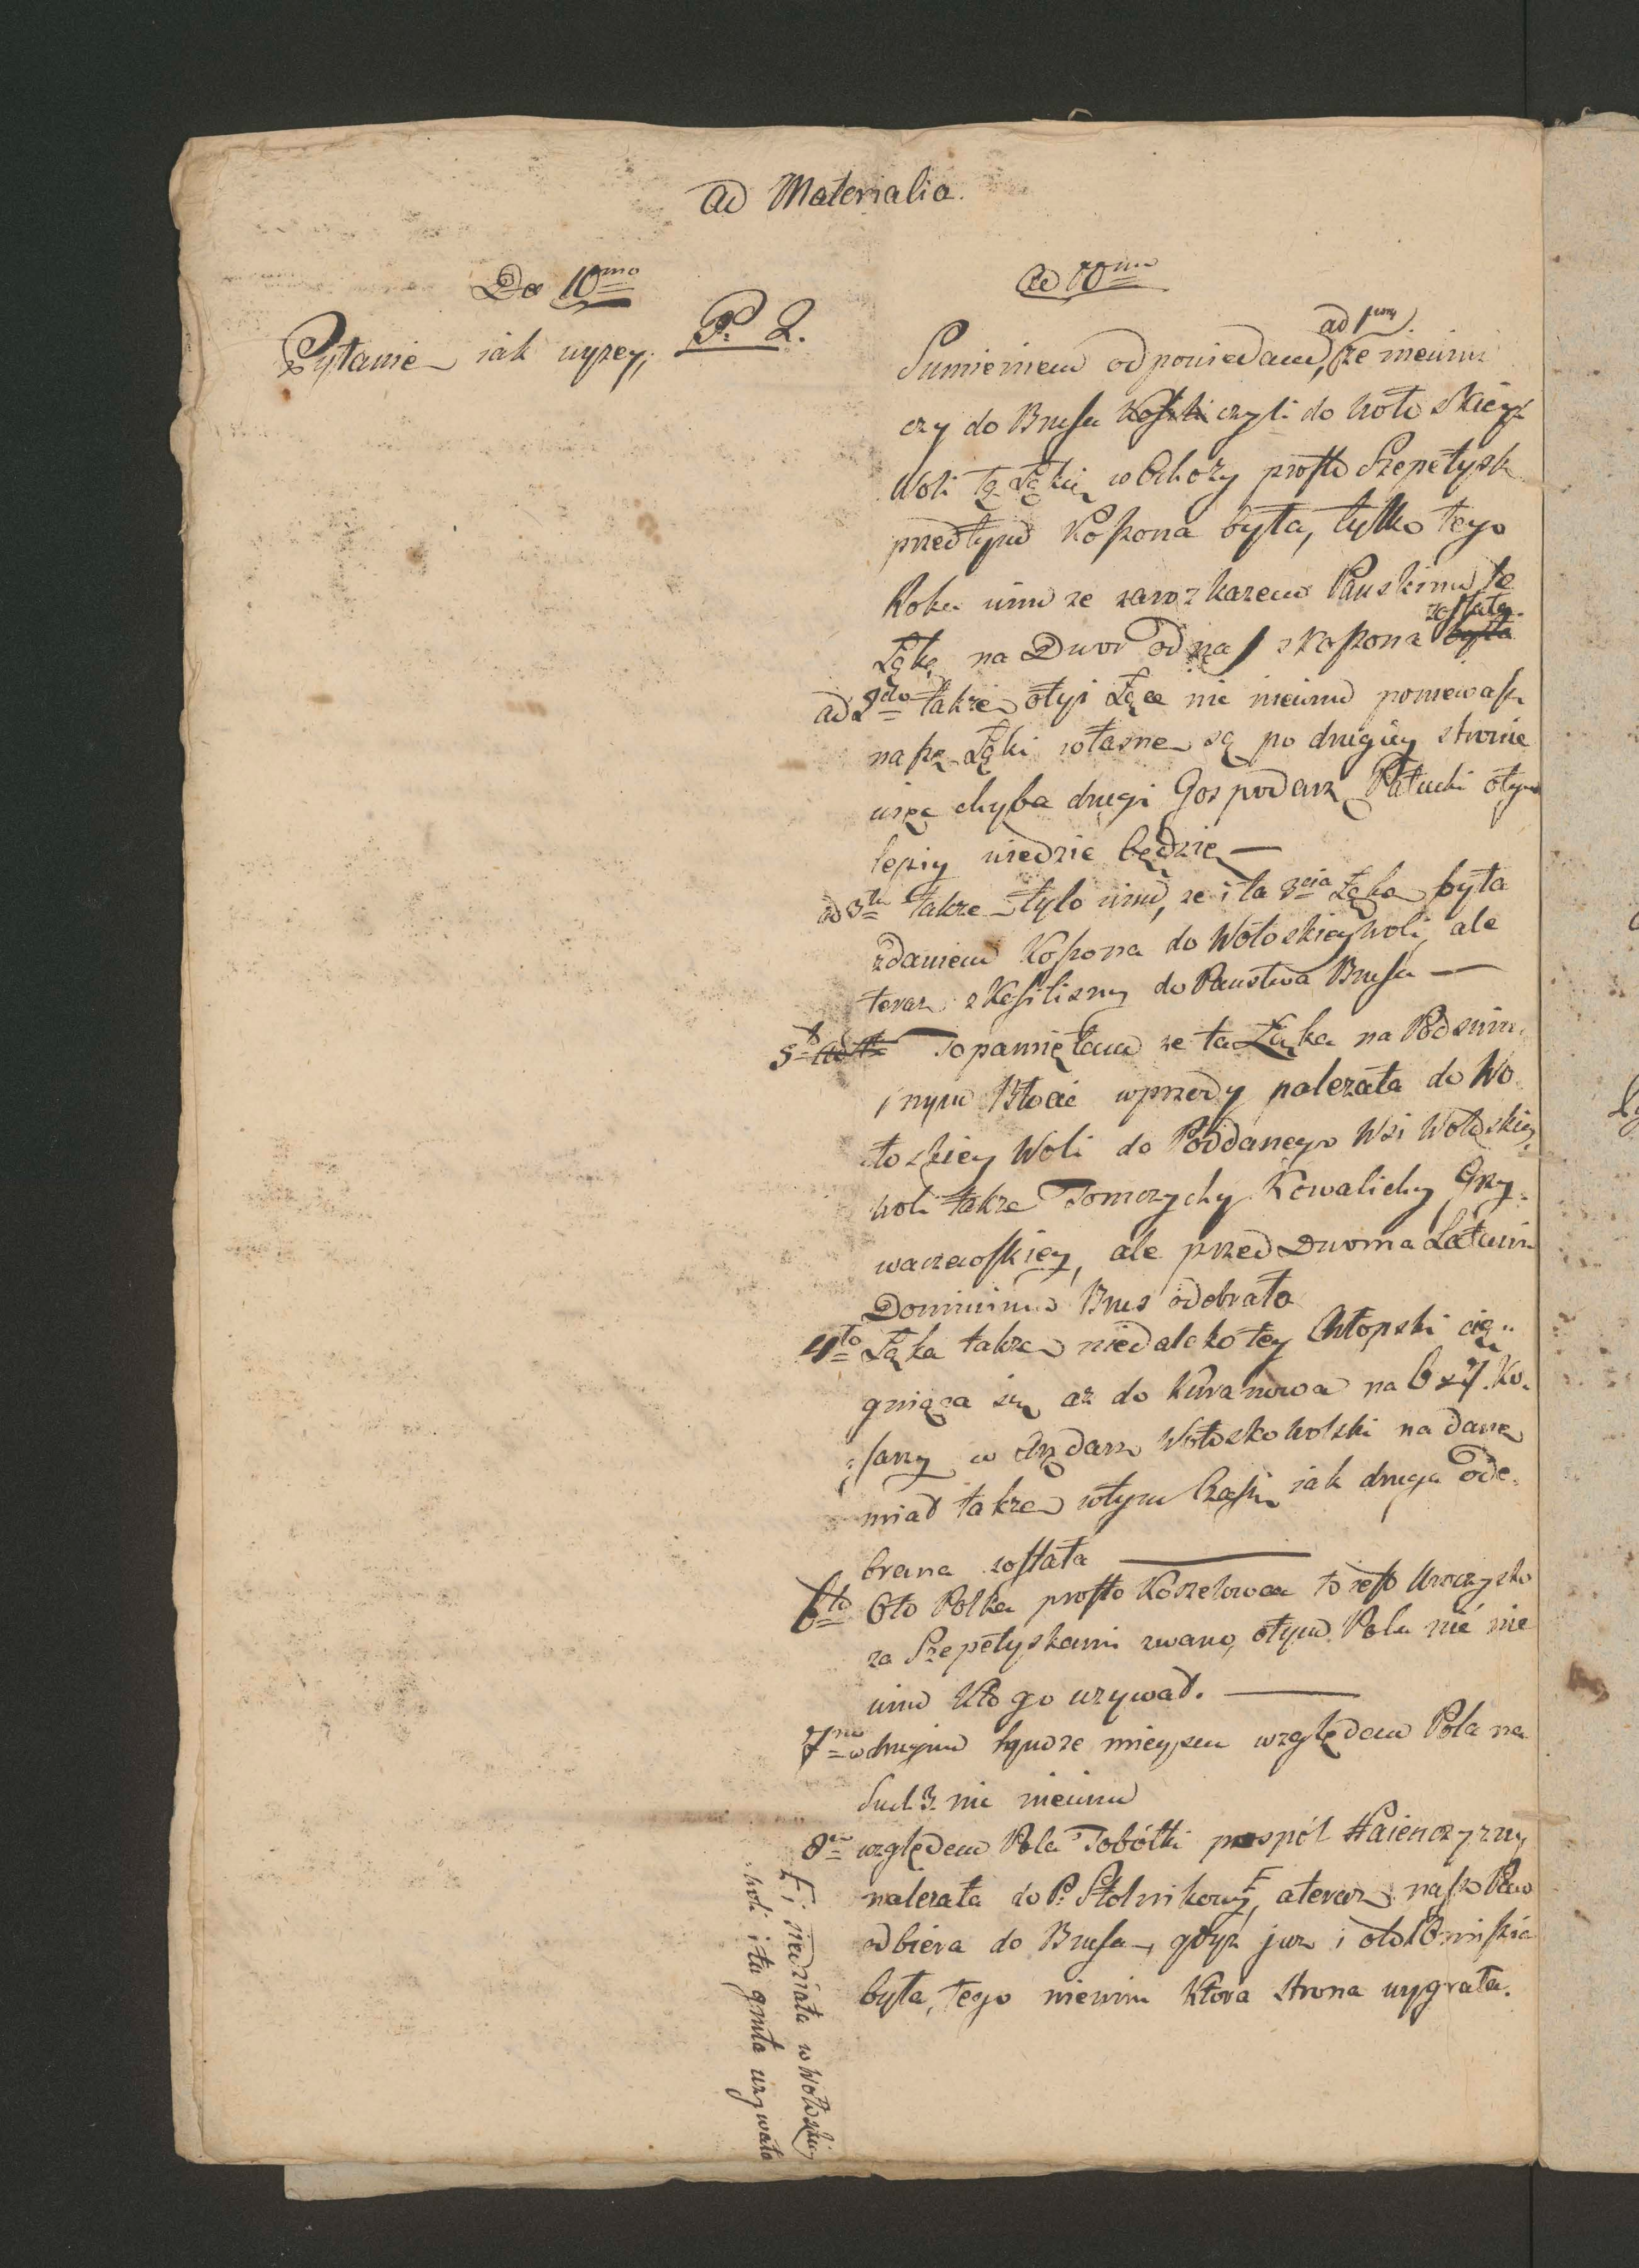 Ad Materialia.
Do 10mo
Pytanie jak wyżey, P. 2.
Ad 10mo
ad 1um
Sumieniem odpowiedam, że niewim
czy do Brusa Kosili czyli do Wołoskiey
Woli tę Łąkę w Olchoży prosto Szepetysk
przedtym Koszona była, tylko tego
Roku wim ze za rozkazem Pańskim te
Łąkę na Dwor skoszona była została
ad 2do także otyi Łące nic niewim poniewasz
nasze Łąki własne są po drugiey stronie
więc chyba drugi Gospodarz Pałucki otym
lepiy wiedzie będzie —
ad 3tio także tylo wim, ze i ta 3cia Łąka była
zdaniem Koszona do Wołoskiey Woli, ale
teraz skosilismy do Państwa Brusa —
5to ad 4to To pamiętam ze ta Łąka na Podzim
nym Błocie wprzody nalezała do Wo
łoskiey Woli do Poddanego Wsi Wołoskiey
Woli także Tomczychy Kowalichy Grzy
waczewskiey, ale przed Dwoma Latami
Dominium Brus odebrało
4to Łąka także niedaleko tey Chłopski cią
gniąca się az do Kuranowa na 6 z 7 Ko
sarzy w Arędarz Wołoskowolski nadane
miał także wtym Czasie jak druga ode
brana została —
6to 6to Polka prosto Koszelowca to jest Uroczysko
za Szepetyskami zwano, otym Polu nic nie
wim Kto go uzywał. —
7mo w drugim tymze mieyscu względem Pola na
Sud. 3. nic niewim
8vo względem Pola Tobółki pospół Hajenczyzny
nalezała do P. Stolnikowy F, ateraz nasz Pan
odbiera do Brusa, gdyz juz i oto Kommissia
była, tego niewim Ktora strona wygrała.
F i siedziała w Wołoskiey
Woli i ta gruta uzywała